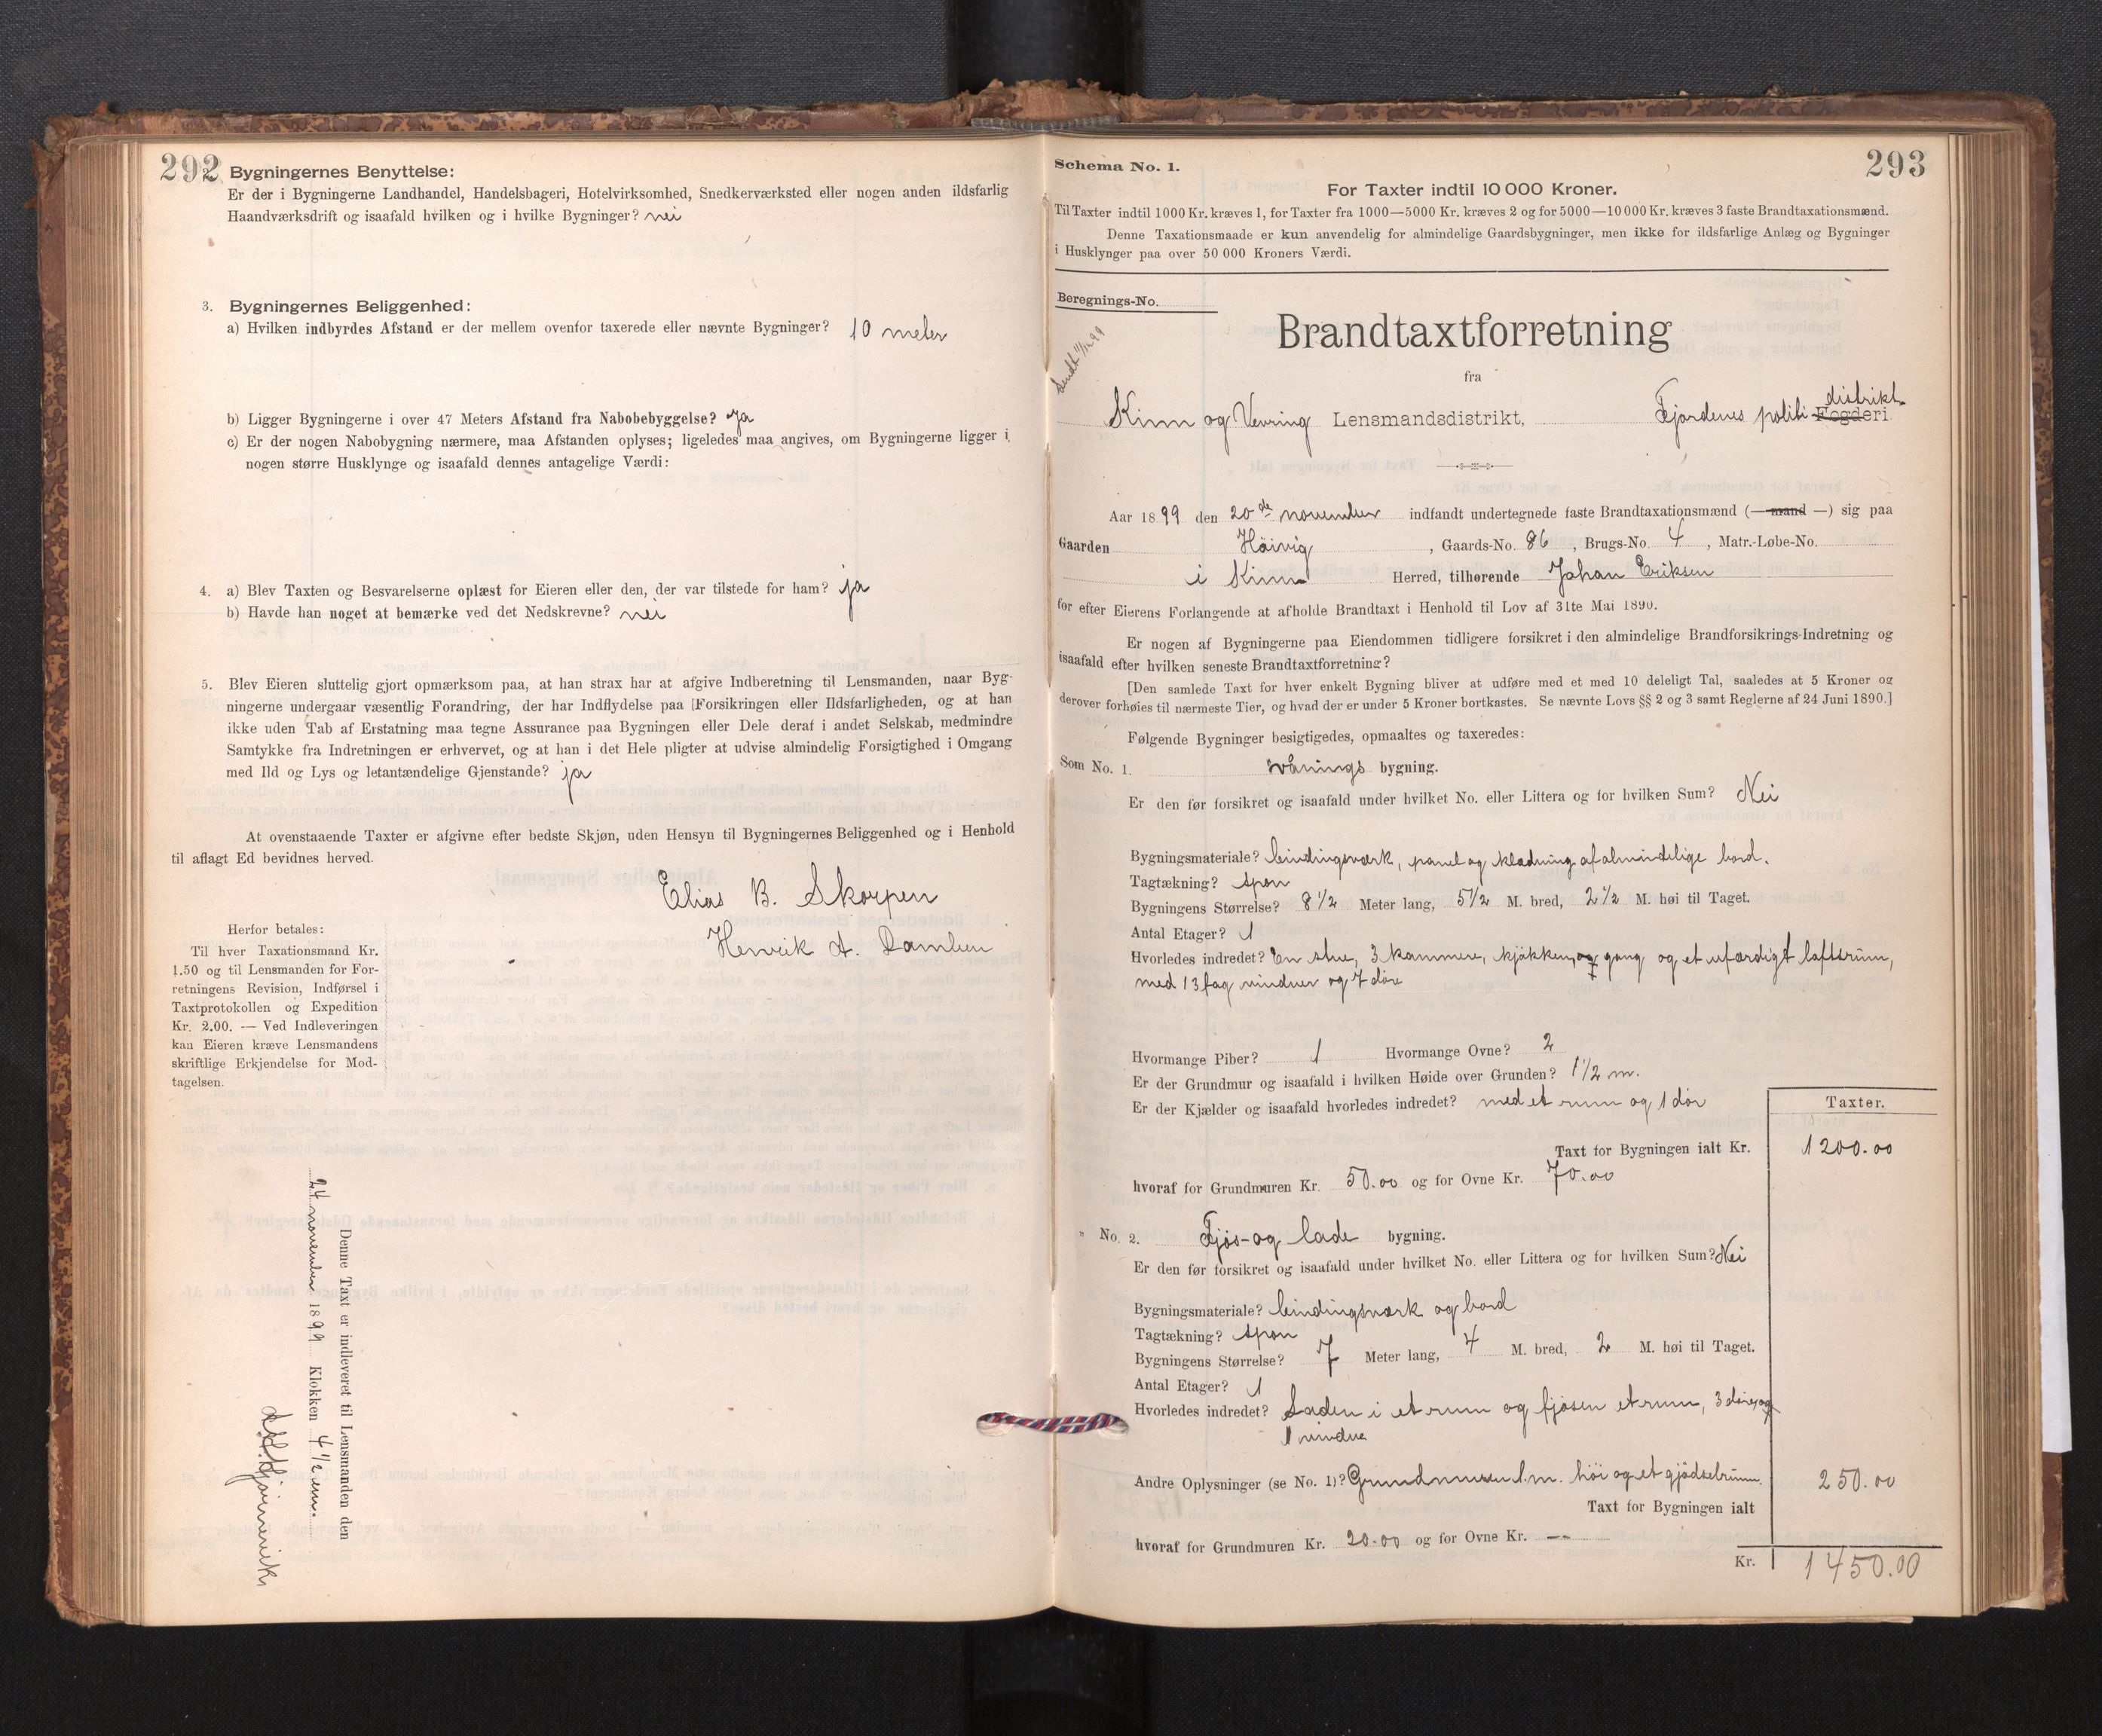 292
Bygningernes Benyttelse:
Er der i Bygningerne Landhandel, Handelsbageri, Hotelvirksomhed, Snedkerværksted eller nogen anden ildsfarlig
Haandværksdrift og isaafald hvilken og i hvilke Bygninger? nei
3. Bygningernes Beliggenhed:
a) Hvilken indbyrdes Afstand er der mellem ovenfor taxerede eller nævnte Bygninger? 10 meter
b) Ligger Bygningerne i over 47 Meters Afstand fra Nabobebyggelse? Ja
c) Er der nogen Nabobygning nærmere, maa Afstanden oplyses; ligeledes maa angives, om Bygningerne ligger i
nogen større Husklynge og isaafald dennes antagelige Værdi:
4. a) Blev Taxten og Besvarelserne oplæst for Eieren eller den, der var tilstede for ham? ja
b) Havde han noget at bemærke ved det Nedskrevne? nei
5. Blev Eieren sluttelig gjort opmærksom paa, at han strax har at afgive Indberetning til Lensmanden, naar Byg-
ningerne undergaar væsentlig Forandring, der har Indflydelse paa Forsikringen eller Ildsfarligheden, og at han
ikke uden Tab af Erstatning maa tegne Assurance paa Bygningen eller Dele deraf i andet Selskab, medmindre
Samtykke fra Indretningen er erhvervet, og at han i det Hele pligter at udvise almindelig Forsigtighed i Omgang
med Ild og Lys og letantændelige Gjenstande? ja
At ovenstaaende Taxter er afgivne efter bedste Skjøn, uden Hensyn til Bygningernes Beliggenhed og i Henhold
til aflagt Ed bevidnes herved.
Elias B. Skorpen
Henrik A.
Herfor betales:
Til hver Taxationsmand Kr.
1.50 og til Lensmanden for For-
retningens Revision, Indførsel i
Taxtprotokollen og Expedition
Kr. 2.00. — Ved Indleveringen
kan Eieren kræve Lensmandens
skriftlige Erkjendelse for Mod-
tagelsen.
Denne Taxt er indleveret til Lensmanden den
24 november 1899 Klokken 4 1/2 em.
293
Schema No. 1.
For Taxter indtil 10 000 Kroner.
Til Taxter indtil 1000 Kr. kræves 1, for Taxter fra 1000—5000 Kr. kræves 2 og for 5000—10 000 Kr. kræves 3 faste Brandtaxationsmænd.
Denne Taxationsmaade er kun anvendelig for almindelige Gaardsbygninger, men ikke for ildsfarlige Anlæg og Bygninger
i Husklynger paa over 50 000 Kroners Værdi.
Beregnings-No.
Sendt 11/12 99
Brandtaxtforretning
fra
Kinn og Vevring Lensmandsdistrikt, Fjordenes politi distrikt Fogderi.
Aar 1899 den 20de november indfandt undertegnede faste Brandtaxationsmænd (— mand —) sig paa
Gaarden Høivig, Gaards-No. 86, Brugs-No. 4, Matr.-Løbe-No.
i Kinn Herred, tilhørende Johan Eriksen
for efter Eierens Forlangende at afholde Brandtaxt i Henhold til Lov af 31te Mai 1890.
Er nogen af Bygningerne paa Eiendommen tidligere forsikret i den almindelige Brandforsikrings-Indretning og
isaafald efter hvilken seneste Brandtaxtforretning?
[Den samlede Taxt for hver enkelt Bygning bliver at udføre med et med 10 deleligt Tal, saaledes at 5 Kroner og
derover forhøies til nærmeste Tier, og hvad der er under 5 Kroner bortkastes. Se nævnte Lovs §§ 2 og 3 samt Reglerne af 24 Juni 1890.]
Følgende Bygninger besigtigedes, opmaaltes og taxeredes:
Som No. 1. vånings bygning.
Er den før forsikret og isaafald under hvilket No. eller Littera og for hvilken Sum? Nei
Bygningsmateriale? bindingsværk, panel og klædning af almindelige bord.
Tagtækning? spon
Bygningens Størrelse? 8 1/2 Meter lang, 5 1/2 M. bred, 2 1/2 M. høi til Taget.
Antal Etager? 1
Hvorledes indredet? En stue, 3 kammere, kjøkken, og gang og et ufærdigt loftsrum,
med 13 fag vinduer og 7 døre
Hvormange Piber? 1 Hvormange Ovne? 2
Er der Grundmur og isaafald i hvilken Høide over Grunden? 1 1/2 m.
Er der Kjælder og isaafald hvorledes indredet? med et rum og 1 dør
Taxter.
Taxt for Bygningen ialt Kr. 1200.00
hvoraf for Grundmuren Kr. 50.00 og for Ovne Kr. 70.00
" No. 2. Fjøs- og lade bygning.
Er den før forsikret og isaafald under hvilket No. eller Littera og for hvilken Sum? Nei
Bygningsmateriale? bindingsværk og bord
Tagtækning? spon
Bygningens Størrelse? 7 Meter lang, 4 M. bred, 2 M. høi til Taget.
Antal Etager? 1
Hvorledes indredet? Laden i et rum og fjøsen et rum, 3 døre og
1 vindue
Andre Oplysninger (se No. 1)? Grundmuren 1 m. høi og et gjødselrum. 250.00
Taxt for Bygningen ialt
hvoraf for Grundmuren Kr. 20.00 og for Ovne Kr. —
Kr. 1450.00